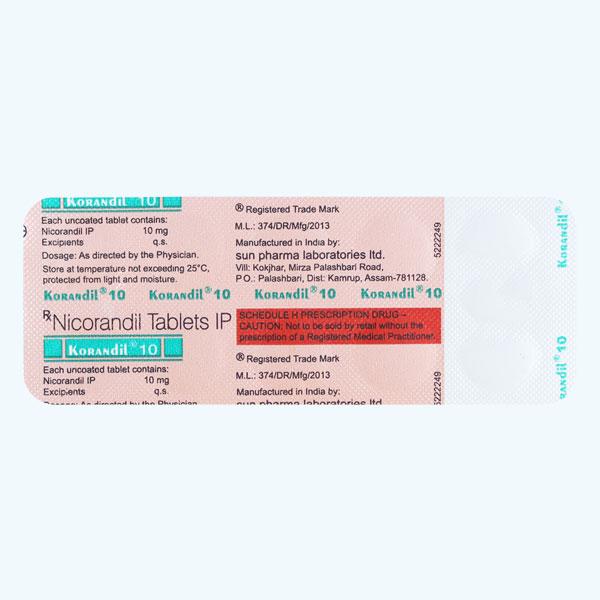 KORANDIL® 10
Each uncoated tablet contains:
Nicorandil IP 10 mg
Excipients q.s.
Dosage: As directed by the Physician.
Store at temperature not exceeding 25°C,
protected from light and moisture.
® Registered Trade Mark
M.L.: 374/DR/Mfg/2013
Manufactured in India by:
sun pharma laboratories ltd.
Vill: Kokjhar, Mirza Palashbari Road,
P.O.: Palashbari, Dist: Kamrup, Assam-781128.
5222249
KORANDIL® 10 KORANDIL® 10 KORANDIL® 10 KORANDIL® 10
Rx Nicorandil Tablets IP
SCHEDULE H PRESCRIPTION DRUG –
CAUTION: Not to be sold by retail without the
prescription of a Registered Medical Practitioner.
KORANDIL® 10
Each uncoated tablet contains:
Nicorandil IP 10 mg
Excipients q.s.
Dosage: As directed by the Physician.
® Registered Trade Mark
M.L.: 374/DR/Mfg/2013
Manufactured in India by:
sun pharma laboratories ltd.
5222249
KORANDIL®
KORANDIL® 10